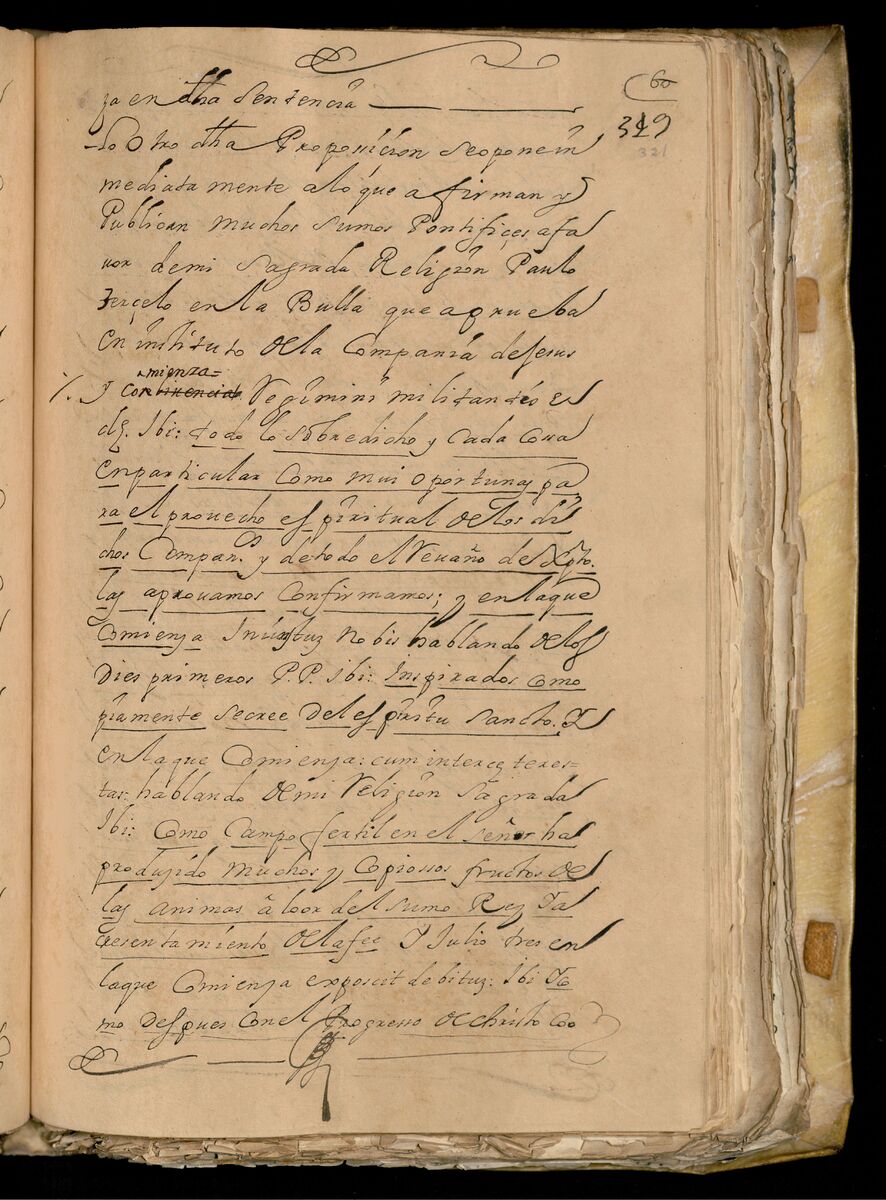 60
349
321
za en dha sentencia
Lo otro dha Proposicion se opone in
mediatamente a lo que afirman y
Publican muchos sumos Pontifiçes a fa
uor de mi Sagrada Religion Paulo
terçelo en la Bulla que aprueba
en instituto de la Compania de Jesus
mienza=
y Co Regimini militantis es
dz. Ibi: todo lo sobredicho y Cada Cosa
en particular Como mui oportunas pa
ra el prouecho espiritual de los di
chos Compan.os y de todo el Revaño de Xpto.
las aprouamos Confirmamos; y en la que
Comienza Iniunctuz nobis hablando de los
Dies primeros P.P. ibi: Inspirados Como
piamente se cree Del espiritu Sancto. Y
en la que Comienza: cum inter cęteres=
tas: hablando de mi Religion Sagrada
Ibi: Como Campo fertil en el señor ha
produzido muchos y Copiossos fructos de
las animas â loor del sumo Rey Ya
cresentamiento de la fee Y Julio tres en
la que Comienza exposcit debituz: Ibi Yo
mo Despues Con el Progresso de Christo Co